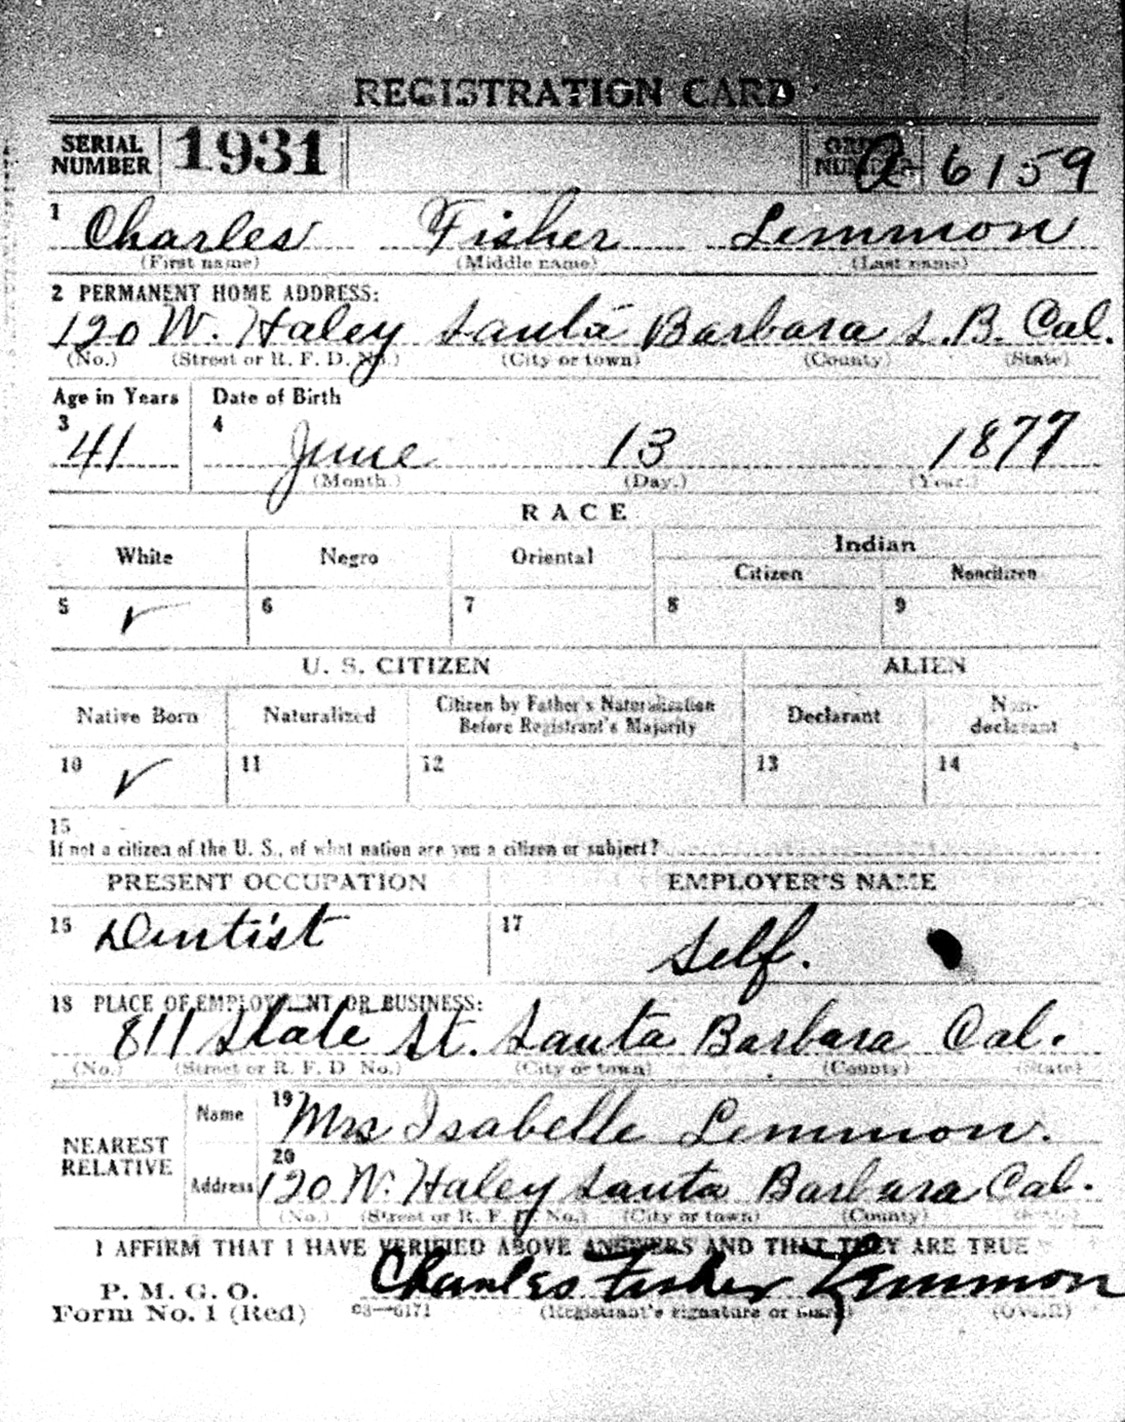 REGISTRATION CARD
SERIAL NUMBER 1931 ORDER NUMBER A 6159
1 Charles Fisher Lemmon
(First name) (Middle name) (Last name)
2 PERMANENT HOME ADDRESS:
120 W. Haley Santa Barbara S.B. Cal.
(No.) (Street or R. F. D. No.) (City or town) (County) (State)
Age in Years Date of Birth
3 41 4 June 13 1877
(Month.) (Day.) (Year.)
RACE
White Negro Oriental Indian
Citizen Noncitizen
5 ✓ 6 7 8 9
U. S. CITIZEN ALIEN
Native Born Naturalized Citizen by Father's Naturalization Before Registrant's Majority Declarant Non-declarant
10 ✓ 11 12 13 14
15
If not a citizen of the U. S., of what nation are you a citizen or subject?
PRESENT OCCUPATION EMPLOYER'S NAME
16 Dentist 17 Self.
18 PLACE OF EMPLOYMENT OR BUSINESS:
811 State St. Santa Barbara Cal.
(No.) (Street or R. F. D. No.) (City or town) (County) (State)
NEAREST RELATIVE
Name 19 Mrs Isabelle Lemmon.
Address 20 120 W. Haley Santa Barbara Cal.
(No.) (Street or R. F. D. No.) (City or town) (County) (State)
I AFFIRM THAT I HAVE VERIFIED ABOVE ANSWERS AND THAT THEY ARE TRUE
P. M. G. O. Charles Fisher Lemmon
Form No. 1 (Red) 03—6171 (Registrant's signature or mark) (OVER)